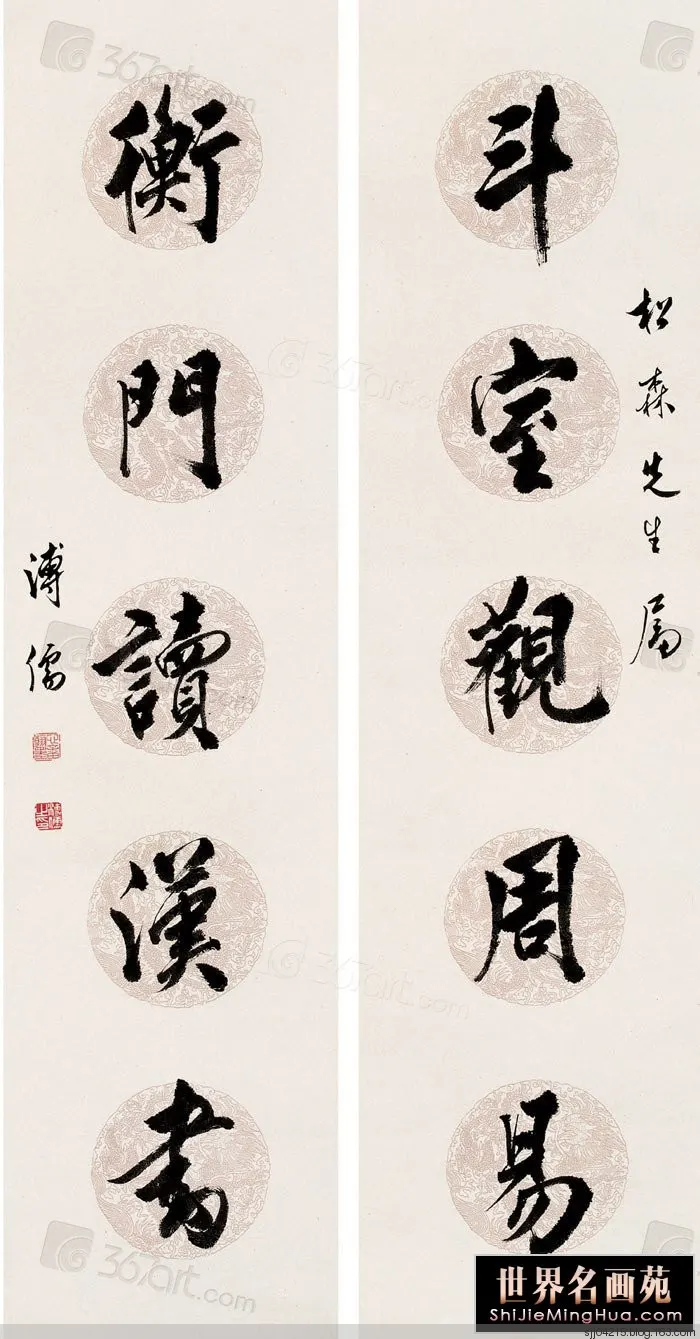 松森先生属
斗室觀周易
衡門讀漢書
溥儒
367art.com
367art.com
367art.com
367art.com
世界名画苑
ShiJieMingHua.com
sjjo4215.blog.163.com